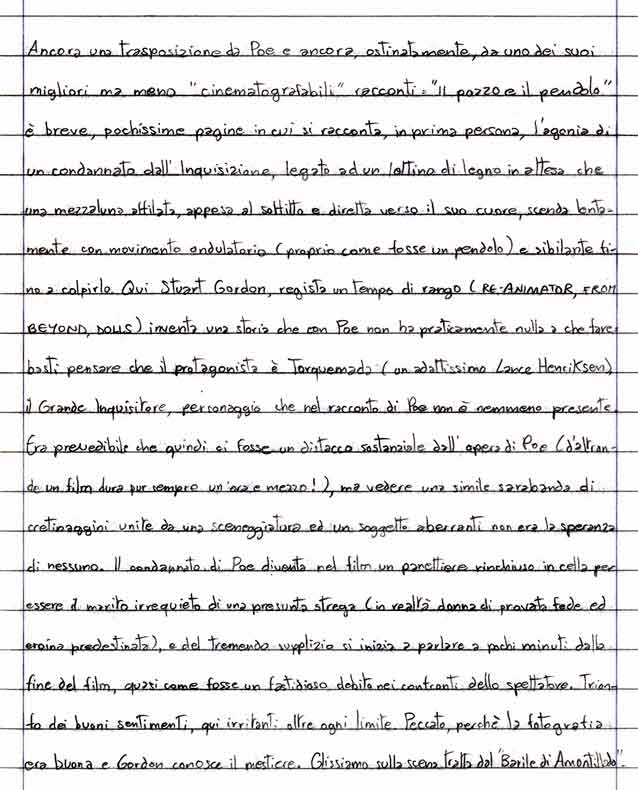 Ancora una trasposizione da Poe e ancora, ostinatamente, da uno dei suoi
migliori ma meno "cinematografabili" racconti: "Il pozzo e il pendolo"
è breve, pochissime pagine in cui si racconta, in prima persona, l'agonia di
un condannato dall'Inquisizione, legato ad un lettino di legno in attesa che
una mezzaluna affilata, appesa al soffitto e diretta verso il suo cuore, scenda lenta-
mente con movimento ondulatorio (proprio come fosse un pendolo) e sibilante fi-
no a colpirlo. Qui Stuart Gordon, regista un tempo di rango (RE-ANIMATOR, FROM
BEYOND, DOLLS) inventa una storia che con Poe non ha praticamente nulla a che fare
basti pensare che il protagonista è Torquemada (un adattissimo Lance Henriksen)
il Grande Inquisitore, personaggio che nel racconto di Poe non è nemmeno presente.
Era prevedibile che quindi ci fosse un distacco sostanziale dall'opera di Poe (d'altron-
de un film dura pur sempre un'ora e mezzo!), ma vedere una simile sarabanda di
cretinaggini unite da una sceneggiatura ed un soggetto aberranti non era la speranza
di nessuno. Il condannato di Poe diventa nel film un panettiere rinchiuso in cella per
essere il marito irrequieto di una presunta strega (in realtà donna di provata fede ed
eroina predestinata), e del tremendo supplizio si inizia a parlare a pochi minuti dalla
fine del film, quasi come fosse un fastidioso debito nei confronti dello spettatore. Trion-
fo dei buoni sentimenti, qui irritanti oltre ogni limite. Peccato, perchè la fotografia
era buona e Gordon conosce il mestiere. Glissiamo sulla scena tratta dal "Barile di Amontillado".